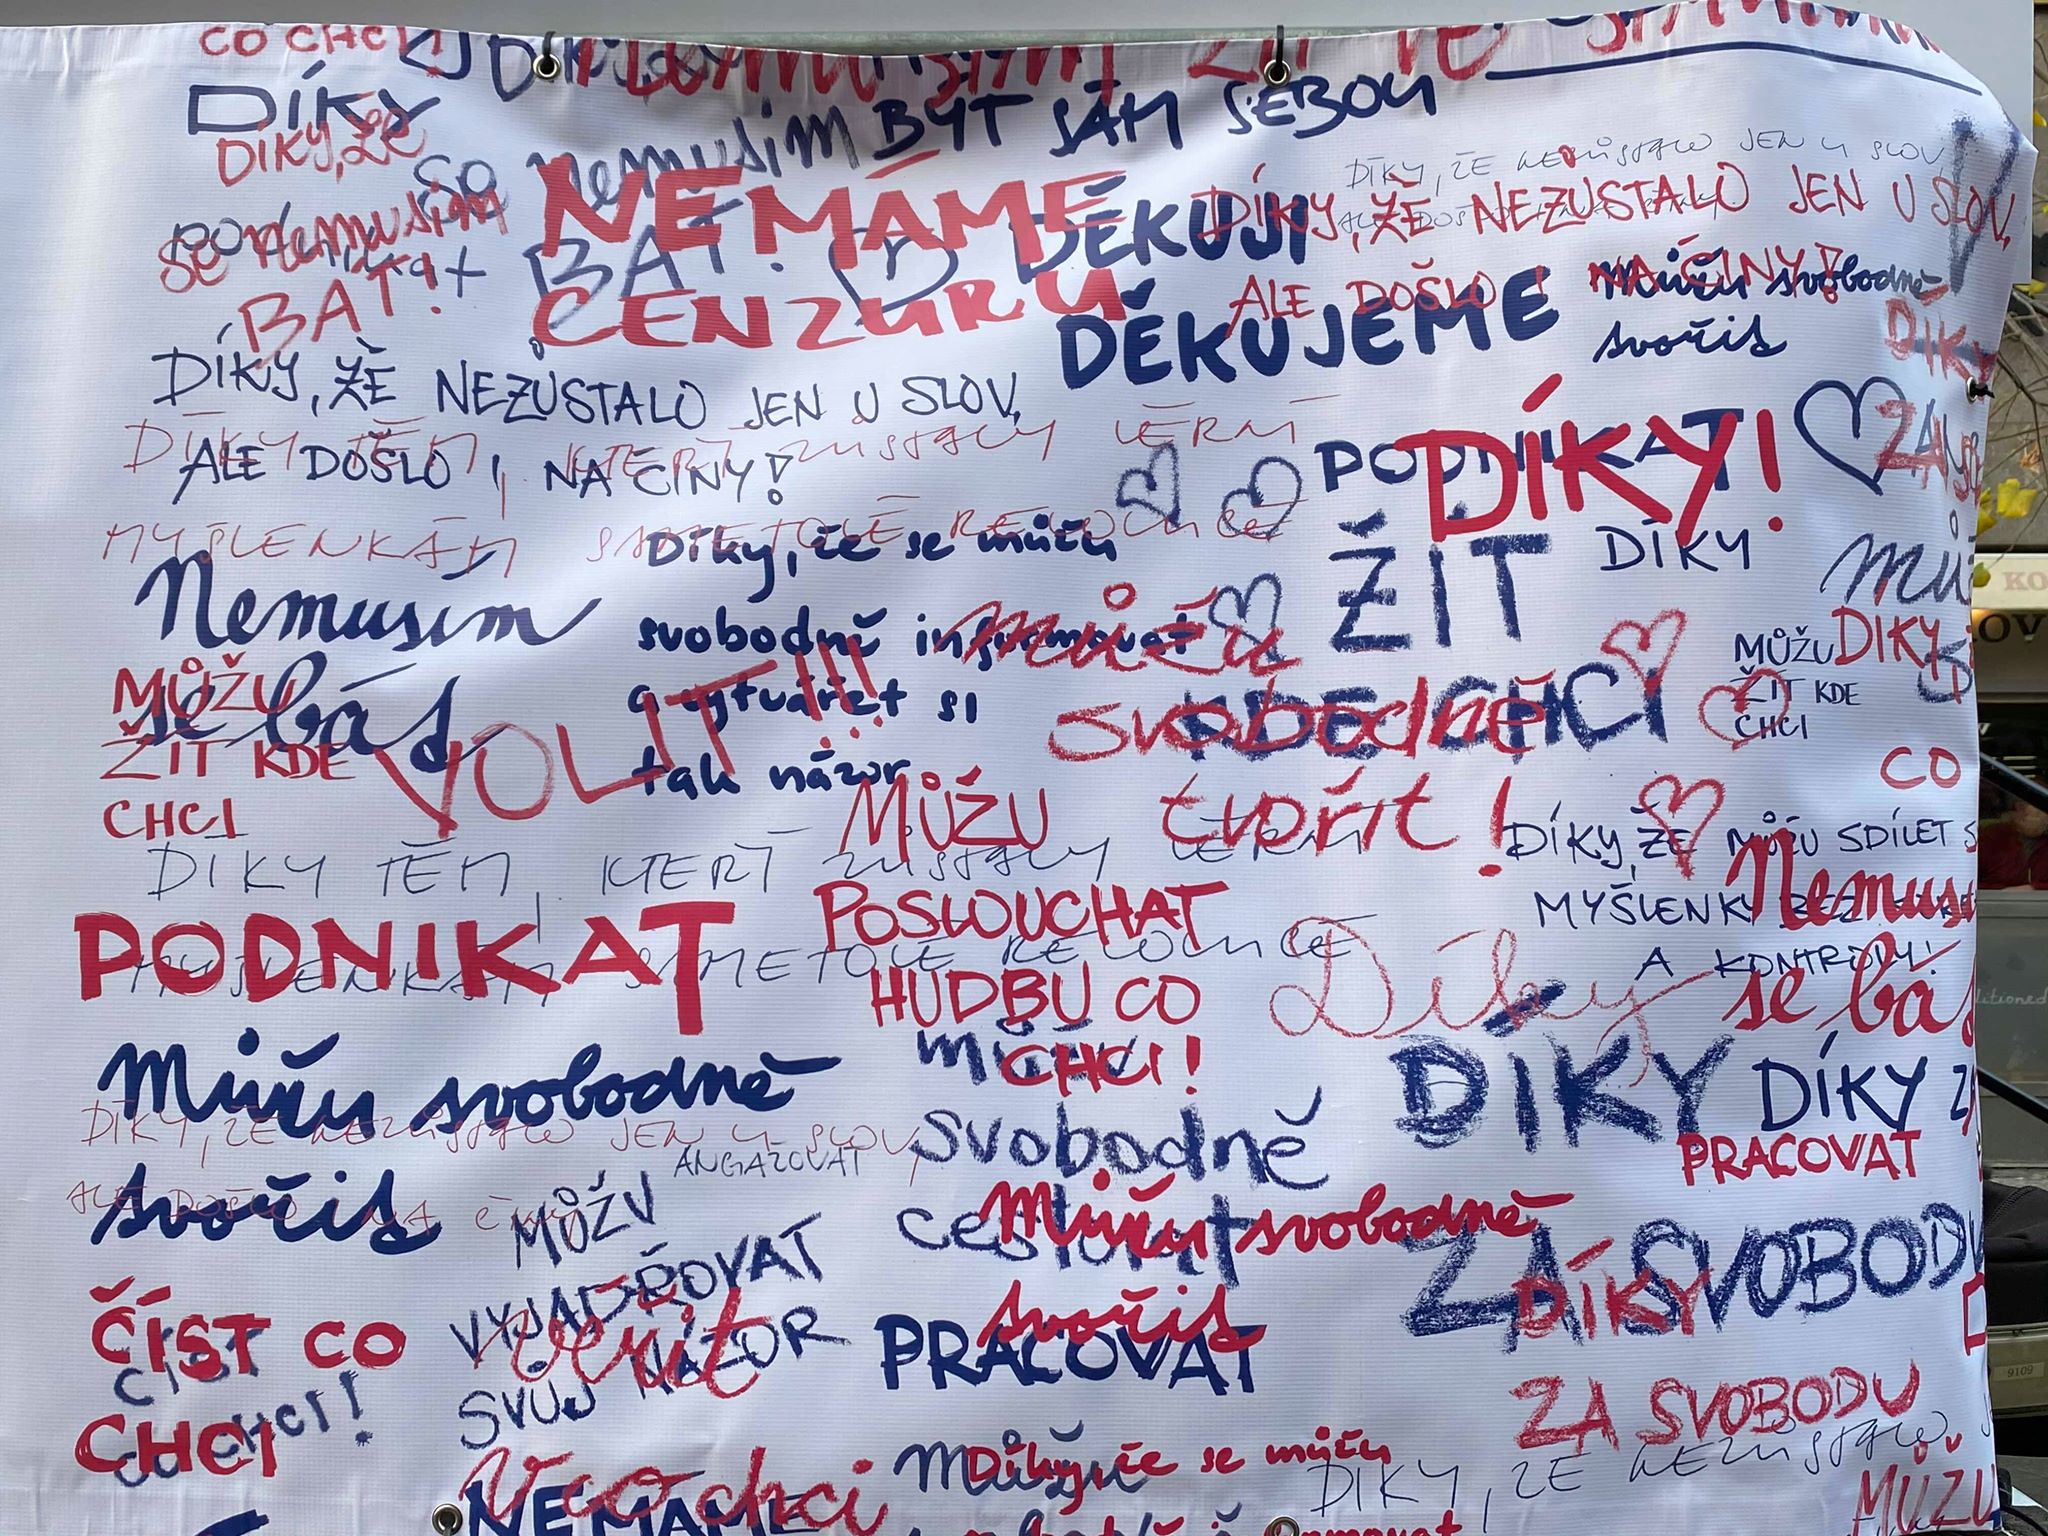 CO CHCI
DÍKY
DÍKY, ŽE
se nemusím
BÁT!
nemusím
BÝT SÁM SEBOU
NEMÁME
CENZURU
BÁT.
DĚKUJI
DĚKUJEME
DÍKY, ŽE NEZŮSTALO JEN U SLOV,
DÍKY, ŽE NEZŮSTALO JEN U SLOV,
ALE DOŠLO I NA ČINY!
Můžu svobodně
svořis
DÍKY
DÍKY, ŽE NEZŮSTALO JEN U SLOV,
ALE DOŠLO I NA ČINY!
DÍKY TĚM, KTEŘÍ ZŮSTALY VĚRNÍ
MYŠLENKÁM SAMETOVÉ REVOLUCE
PODNIKAT
DÍKY!
DÍKY
ŽÍT
KDE CHCI
Díky, že se můžu
svobodně informovat
a vytvářet si
tak názor
Nemusím
se bás
MŮŽU
ŽÍT KDE
CHCI
VOLIT!!!
můžu
svobodně
tvořit!
MŮŽU
ŽÍT KDE
CHCI
DÍKY
CO
MŮŽU
POSLOUCHAT
HUDBU CO
CHCI!
DÍKY, ŽE MŮŽU SDÍLET
MYŠLENKY BEZ
A KONTROLY!
Nemus
se bás
DÍKY TĚM, KTEŘÍ ZŮSTALY VĚRNÍ
MYŠLENKÁM SAMETOVÉ REVOLUCE
PODNIKAT
Díky
DÍKY
DÍKY
ZA SVOBODU
PRACOVAT
Můžu svobodně
svořis
DÍKY, ŽE NEZŮSTALO JEN U SLOV,
ALE DOŠLO I NA ČINY
ANGAŽOVAT
můžu
svobodně
cestovat
Můžu svobodně
svořis
PRACOVAT
MŮŽU
VYJADŘOVAT
SVŮJ NÁZOR
ČÍST CO
CHCI
ČÍST
CO CHCI!
věřit
V co chci
DÍKY
ZA SVOBODU
DÍKY, ŽE NEZŮSTALO
MŮŽU
Můžu
Díky, že se můžu
NEMÁME
9109